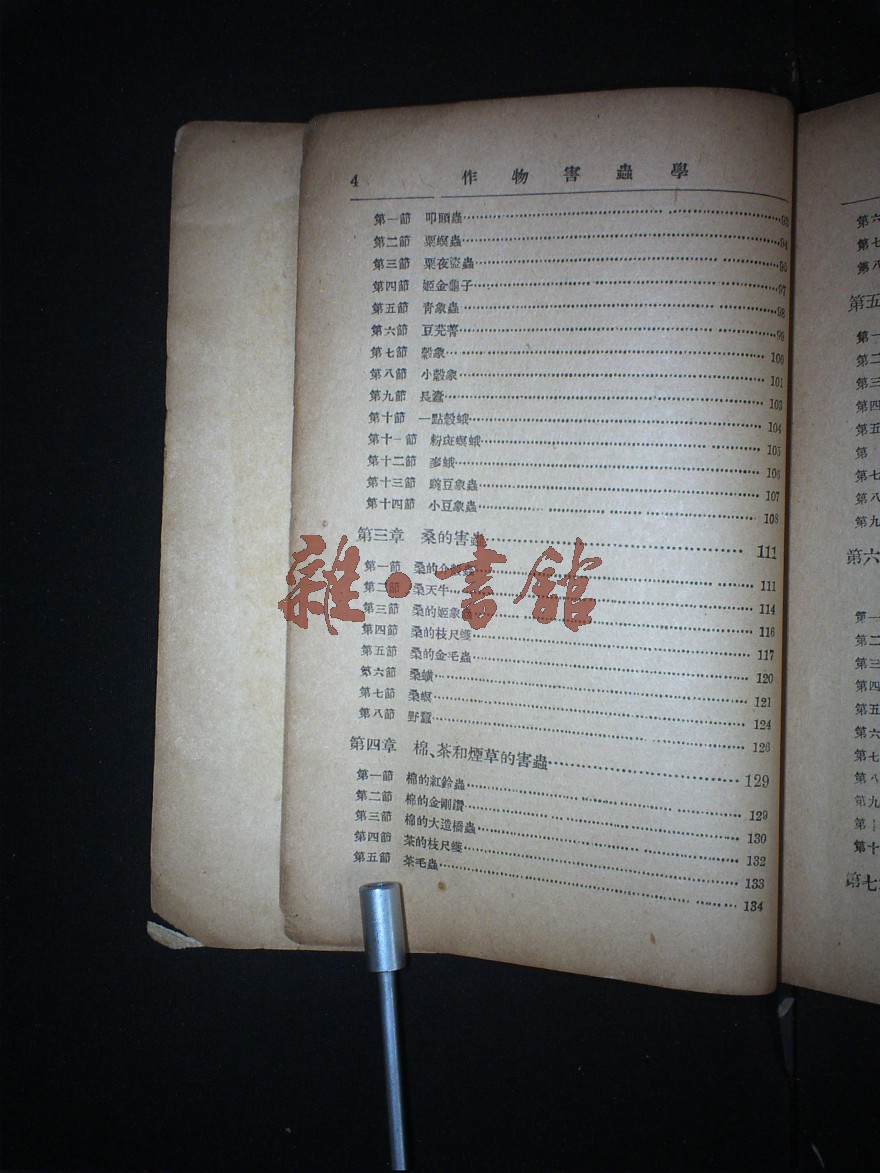 4 作物害蟲學
第一節 叩頭蟲 93
第二節 粟螟蟲 94
第三節 粟夜盜蟲 96
第四節 姬金龜子 97
第五節 青象蟲 98
第六節 豆芫菁 99
第七節 穀象 100
第八節 小穀象 101
第九節 長蠹 103
第十節 一點穀蛾 104
第十一節 粉斑螟蛾 105
第十二節 麥蛾 106
第十三節 豌豆象蟲 107
第十四節 小豆象蟲 108
第三章 桑的害蟲 111
第一節 桑的介殼蟲 111
第二節 桑天牛 114
第三節 桑的姬象蟲 116
第四節 桑的枝尺蠖 117
第五節 桑的金毛蟲 120
第六節 桑蟥 121
第七節 桑螟 124
第八節 野蠶 126
第四章 棉、茶和煙草的害蟲 129
第一節 棉的紅鈴蟲 129
第二節 棉的金剛鑽 130
第三節 棉的大造橋蟲 132
第四節 茶的枝尺蠖 133
第五節 茶毛蟲 134
雜·書館
第六
第七
第八
第五
第一
第二
第三
第四
第五
第
第七
第八
第九
第六
第一
第二
第三
第四
第五
第六
第七
第八
第九
第十
第十
第七